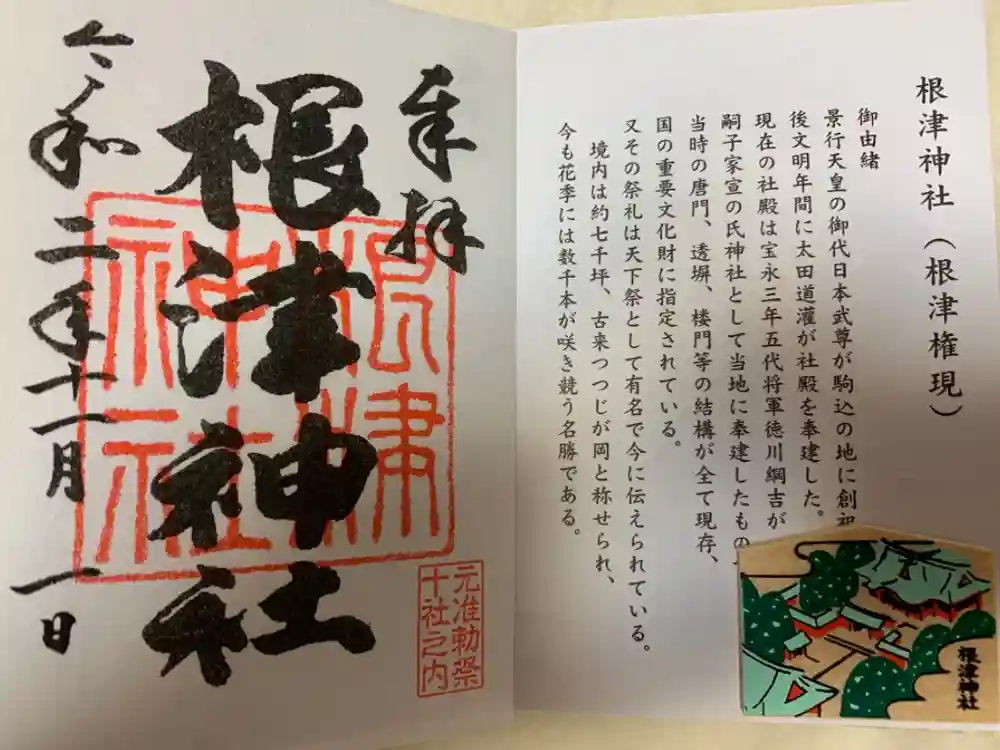 奉拝
根津神社
令和二年十一月一日
根津神社
元准勅祭
十社之内
根津神社（根津権現）
御由緒
景行天皇の御代日本武尊が駒込の地に創祀
後文明年間に太田道灌が社殿を奉建した。
現在の社殿は宝永三年五代将軍徳川綱吉が
嗣子家宣の氏神社として当地に奉建したもの
当時の唐門、透塀、楼門等の結構が全て現存、
国の重要文化財に指定されている。
又その祭礼は天下祭として有名で今に伝えられている。
境内は約七千坪、古来つつじが岡と称せられ、
今も花季には数千本が咲き競う名勝である。
根津神社